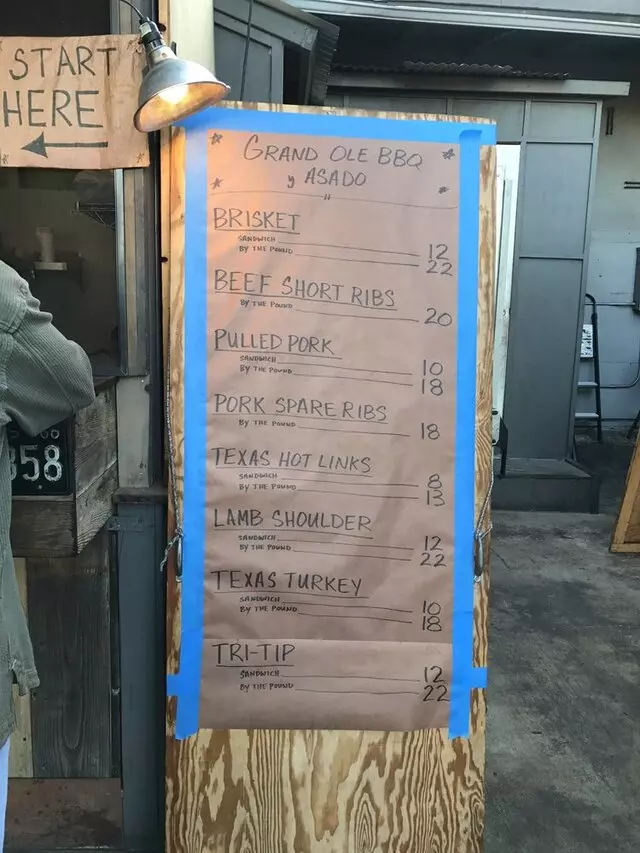 START
HERE
GRAND OLE BBQ
y ASADO
BRISKET
SANDWICH 12
BY THE POUND 22
BEEF SHORT RIBS
BY THE POUND 20
PULLED PORK
SANDWICH 10
BY THE POUND 18
PORK SPARE RIBS
BY THE POUND 18
TEXAS HOT LINKS
SANDWICH 8
BY THE POUND 13
LAMB SHOULDER
SANDWICH 12
BY THE POUND 22
TEXAS TURKEY
SANDWICH 10
BY THE POUND 18
TRI-TIP
SANDWICH 12
BY THE POUND 22
58